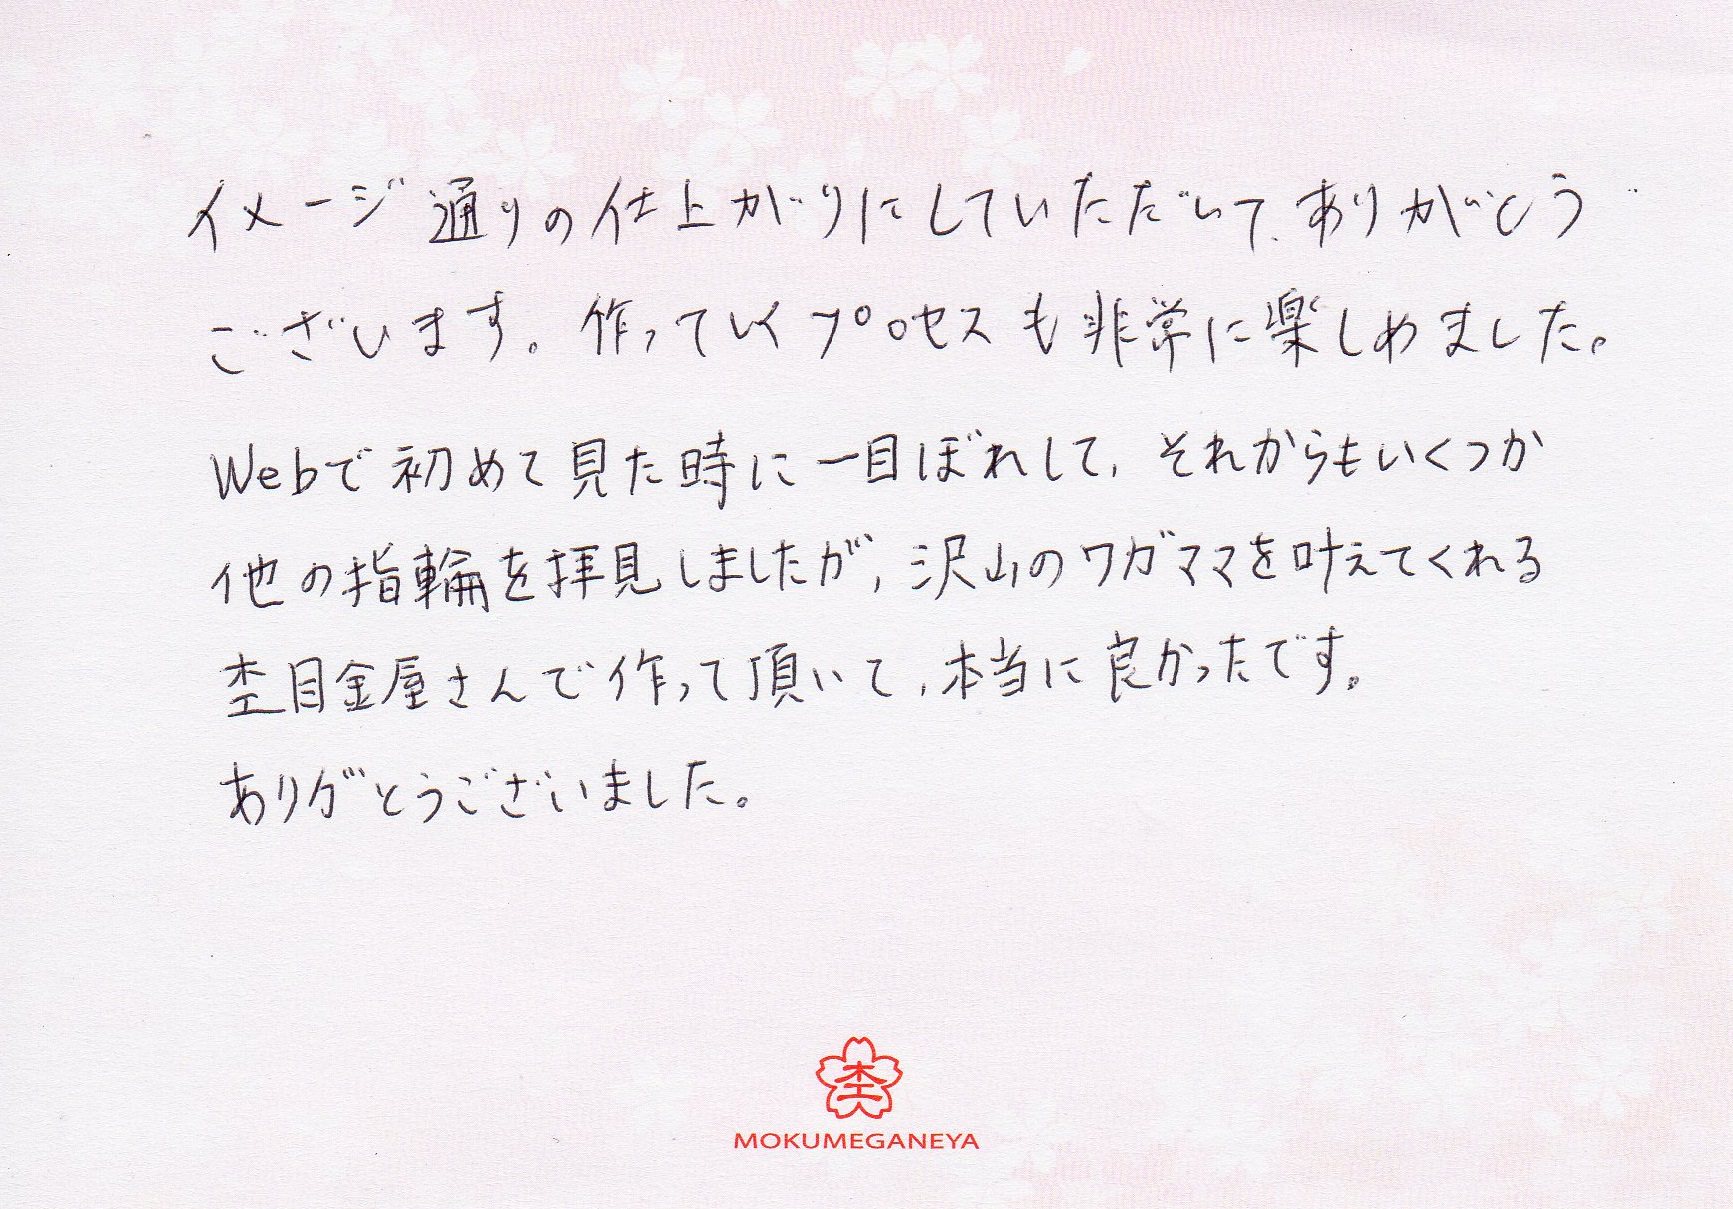 イメージ通りの仕上がりにしていただいて、ありがとう
ございます。作っていくプロセスも非常に楽しめました。
Webで初めて見た時に一目ぼれして、それからもいくつか
他の指輪を拝見しましたが、沢山のワガママを叶えてくれる
杢目金屋さんで作って頂いて、本当に良かったです。
ありがとうございました。
杢
MOKUMEGANEYA